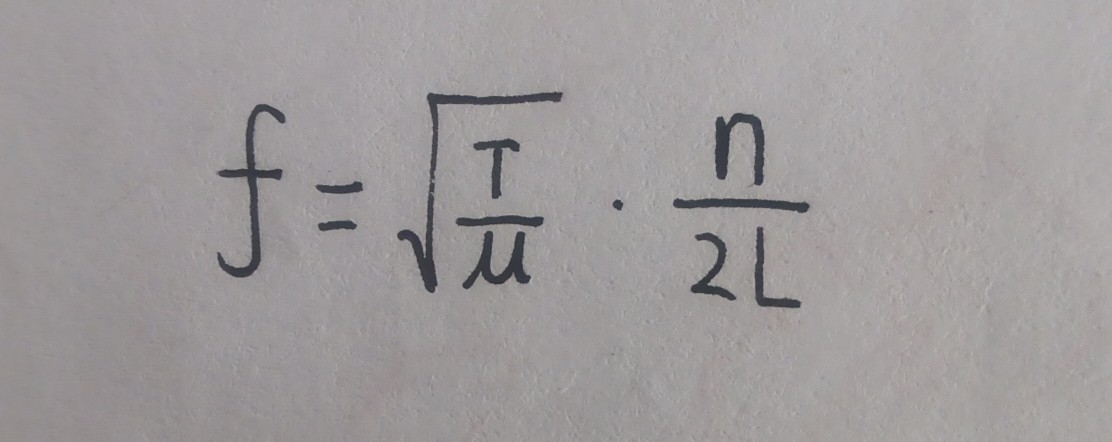 f = √(T/μ) · n/2L